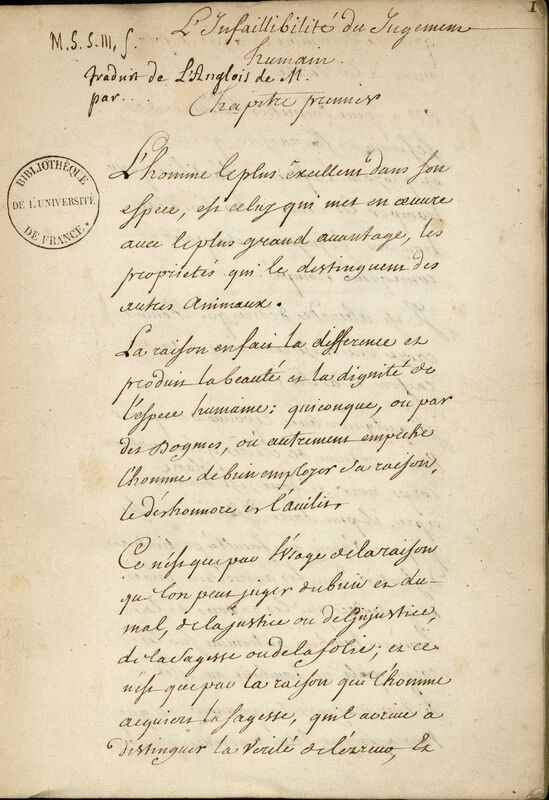 1
L'Infaillibilité du Jugement
humain.
M.S.S. III, f.
traduit de L'Anglois de M.
par...
Chapitre premier
BIBLIOTHÈQUE
DE L'UNIVERSITÉ
DE FRANCE.
L'homme le plus éxcellent dans son
espece, est celuy qui met en œuvre
avec le plus grand avantage, les
proprietés qui le distinguent des
autres animaux.
La raison en fait la difference et
produit la beauté et la dignité de
l'espece humaine: quiconque, ou par
des Dogmes, ou autrement empêche
l'homme de bien employer sa raison,
le déshonnore et l'avilit.
Ce n'est que par l'usage de la raison
que l'on peut juger du bien et du
mal, de la justice ou de l'injustice,
de la sagesse ou de la folie; et ce
n'est que par la raison que l'homme
acquiert la sagesse, qu'il arrive à
distinguer la verité de l'erreur, Et